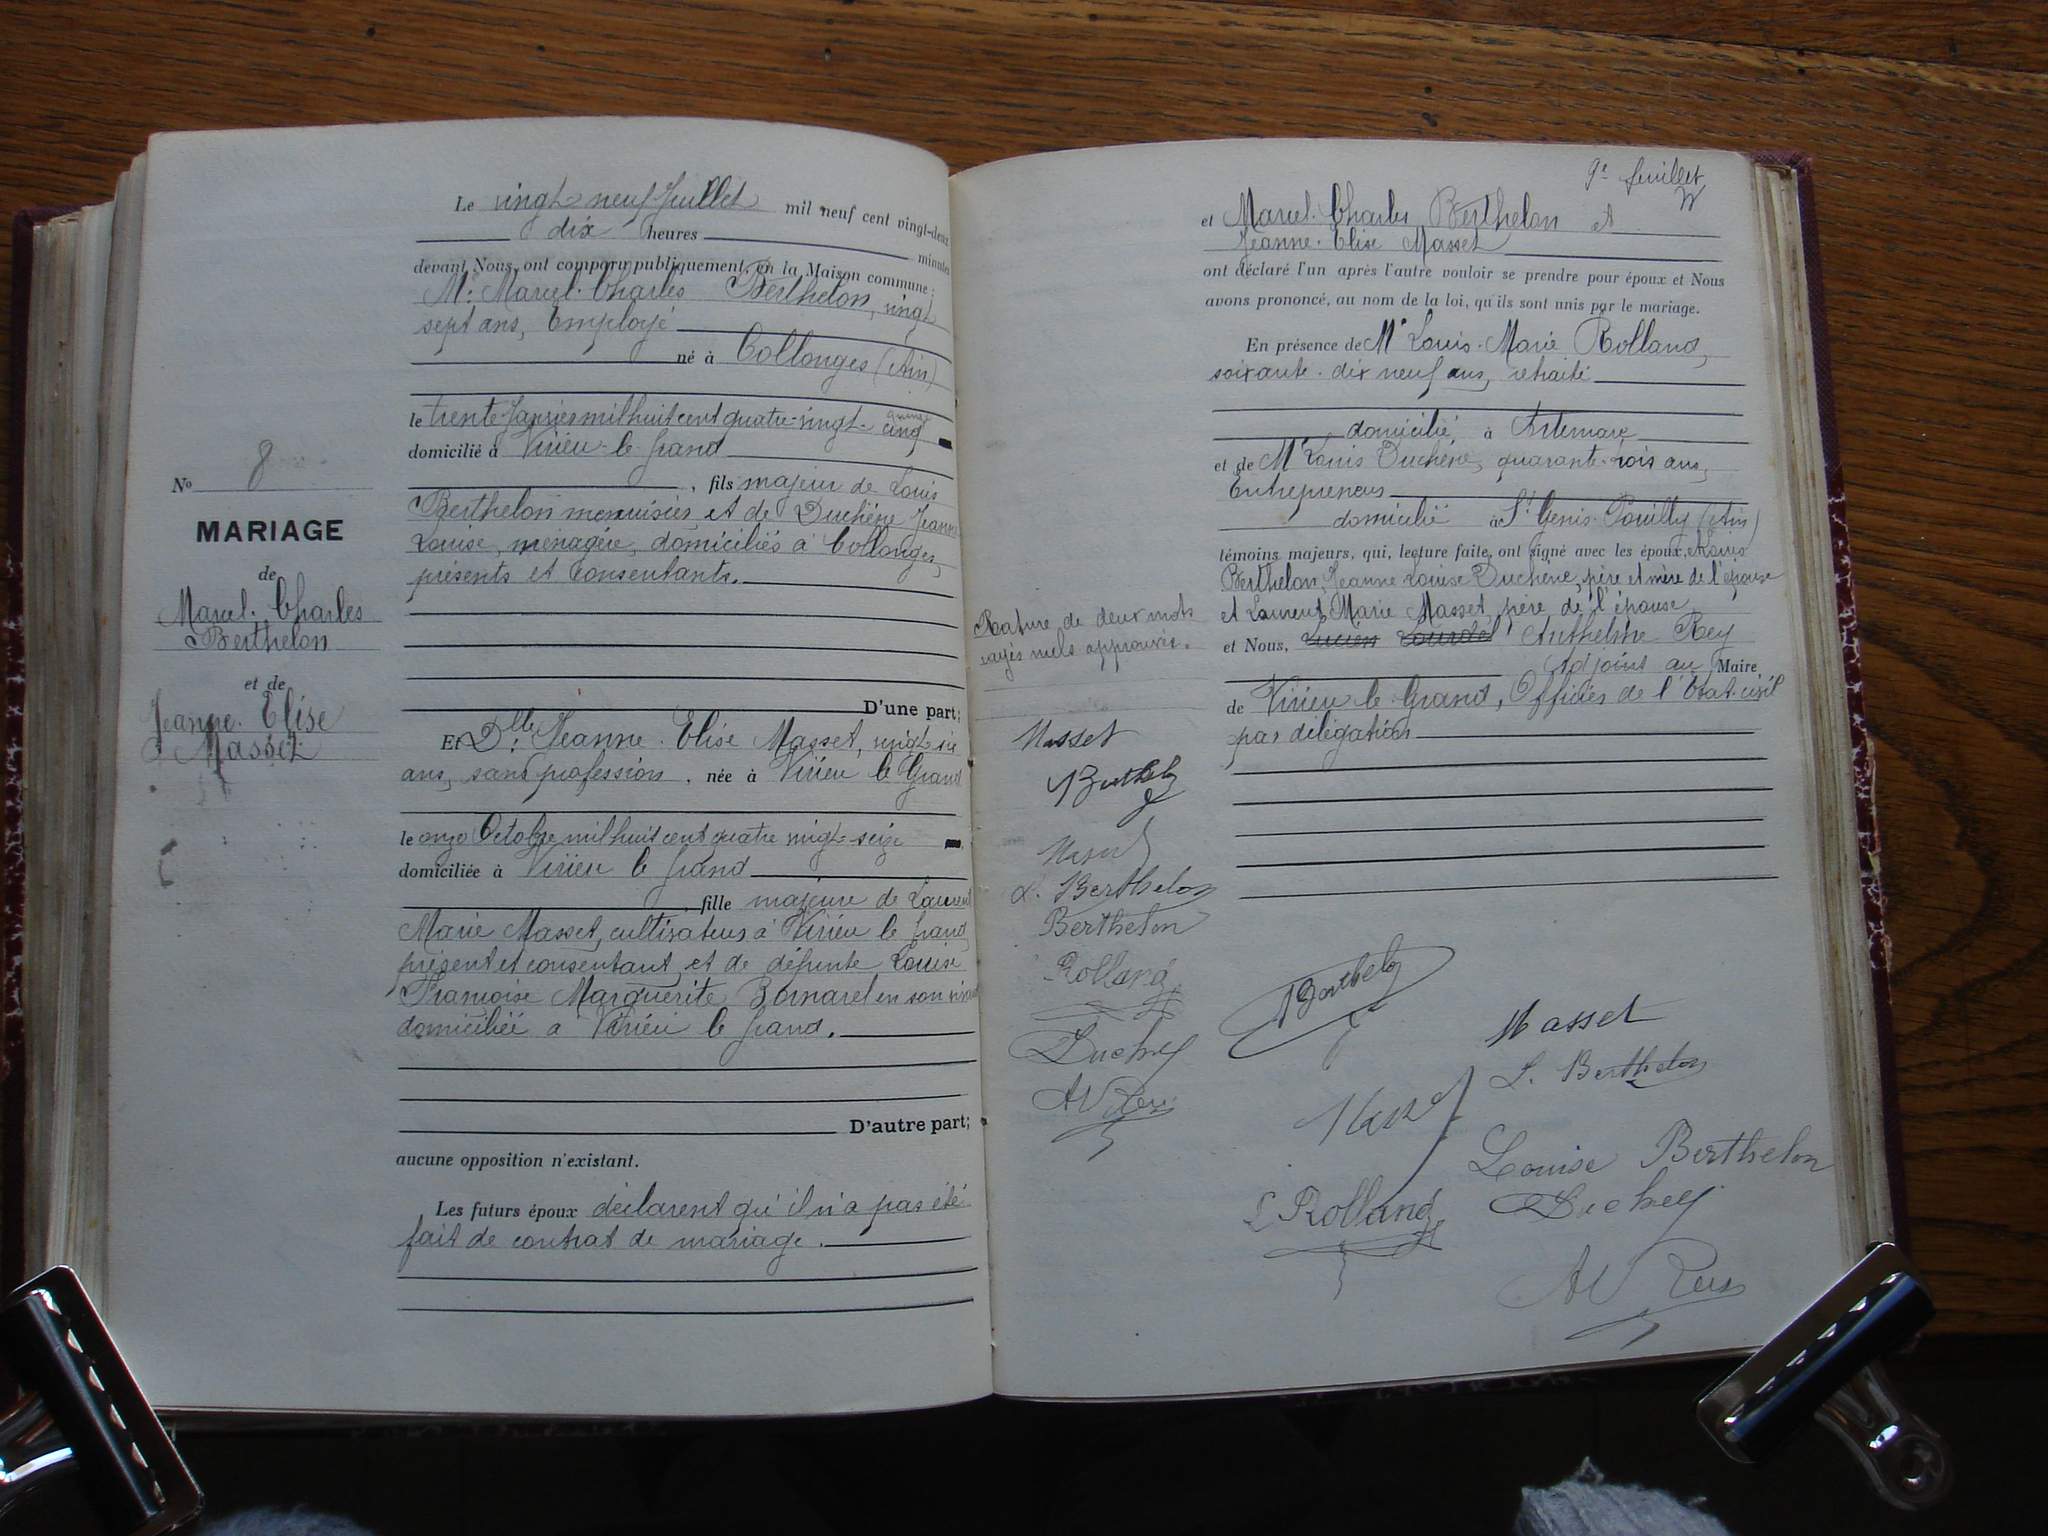 Le vingt neuf Juillet mil neuf cent vingt-deux
dix heures minutes
devant Nous, ont comparu publiquement, en la Maison commune :
Mr Marcel. Charles Berthelon, vingt
sept ans, Employé
né à Collonges (Ain)
le trente Janvier mil huit cent quatre-vingt- cinq
domicilié à Virieu-le-Grand
, fils majeur de Louis
Berthelon menuisier et de Duchêne Jeanne
Louise, ménagère, domiciliés à Collonges,
présents et consentants.
No 8
MARIAGE
de
Marcel. Charles
Berthelon
et de
Jeanne. Elise
Masset
D'une part;
Et Dlle Jeanne. Elise Masset, vingt six
ans, sans profession, née à Virieu le Grand
le onze Octobre mil huit cent quatre vingt-seize
domiciliée à Virieu le Grand
, fille majeure de Laurent
Marie Masset, cultivateur à Virieu le Grand,
présent et consentant et de défunte Louise
Françoise Marguerite Bornarel en son vivant
domiciliée à Virieu le Grand.
D'autre part;
aucune opposition n'existant.
Les futurs époux déclarent qu'il n'a pas été
fait de contrat de mariage.
9e feuillet
et Marcel. Charles Berthelon et
Jeanne. Elise Masset
ont déclaré l'un après l'autre vouloir se prendre pour époux et Nous
avons prononcé, au nom de la loi, qu'ils sont unis par le mariage.
En présence de Mr Louis. Marie Rolland,
soixante. dix neuf ans, retraité
domicilié à Artemare
et de Mr Louis Duchêne, quarante-trois ans,
Entrepreneur
domicilié à St Genis-Pouilly (Ain)
témoins majeurs, qui, lecture faite, ont signé avec les époux, Louis
Berthelon, Jeanne Louise Duchêne, père et mère de l'époux
et Laurent Marie Masset, père de l'épouse
et Nous, Lucien Lourdel Anthelme Rey
Adjoint au Maire
de Virieu le Grand, Officier de l'Etat-civil
par délégation
Rature de deux mots
rayés nuls approuvée.
Masset
Berthelon
Masset
L. Berthelon
Berthelon
Rolland
Duchêne
Rey
Berthelon
Masset
L. Berthelon
Masset
Louise Berthelon
L Rolland
Duchêne
Rey